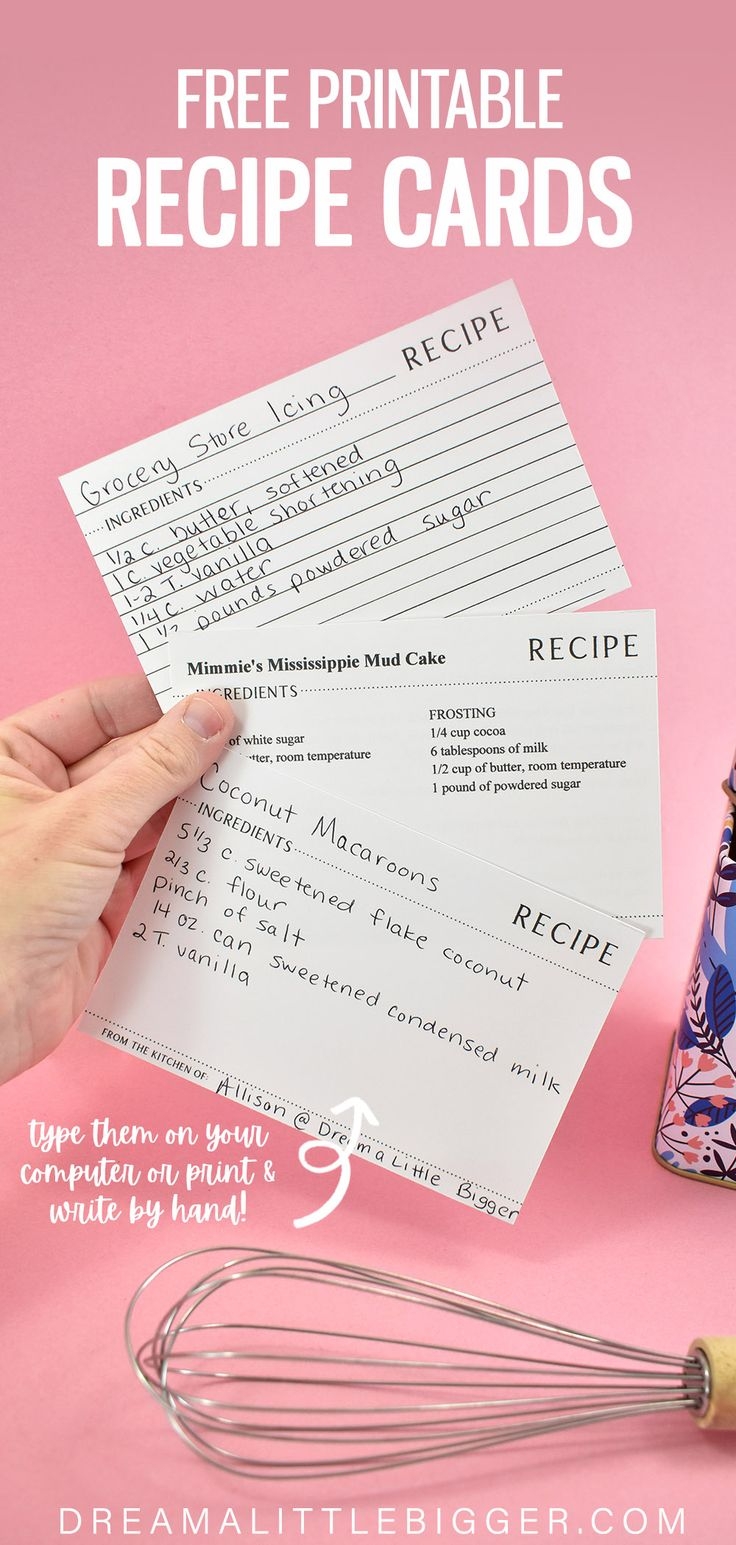 FREE PRINTABLE
RECIPE CARDS
RECIPE
Grocery Store Icing
INGREDIENTS
1/2 c. butter, softened
1 c. vegetable shortening
1-2 T. vanilla
1/4 c. water
1 1/2 pounds powdered sugar
RECIPE
Mimmie's Mississippie Mud Cake
INGREDIENTS
FROSTING
1/4 cup cocoa
of white sugar
6 tablespoons of milk
butter, room temperature
1/2 cup of butter, room temperature
1 pound of powdered sugar
Coconut Macaroons
RECIPE
INGREDIENTS
5 1/3 c. sweetened flake coconut
2/3 c. flour
pinch of salt
14 oz. can sweetened condensed milk
2 T. vanilla
FROM THE KITCHEN OF: Allison @ Dream a Little Bigger
type them on your
computer or print &
write by hand!
DREAMALITTLEBIGGER.COM